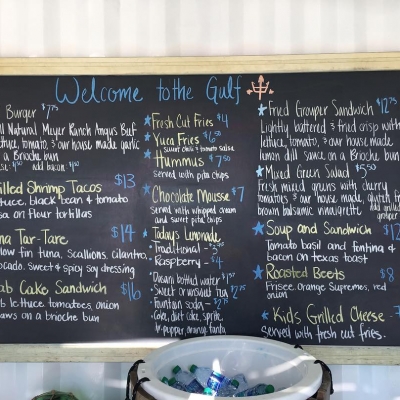 Welcome to the Gulf
Burger $7.75
Natural Meyer Ranch Angus Beef
lettuce, tomato, & our house made garlic
a Brioche bun
add bacon
Grilled Shrimp Tacos $13
lettuce, black bean & tomato
salsa on flour tortillas
Tuna Tar-Tare $14
Yellow fin tuna, scallions, cilantro,
avocado, sweet & spicy soy dressing
Crab Cake Sandwich $16
bibb lettuce, tomatoes, onion
on a brioche bun
Fresh Cut Fries $4
Yuca Fries $6.50
sweet chili & tomato salsa
Hummus $7.50
Served with pita chips
Chocolate Mousse $7
Served with whipped cream
and sweet pita chips
Todays Lemonade
Traditional
Raspberry - $4
Dasani bottled water
Sweet or unsweet tea
Fountain soda - $2.25
Coke, diet coke, sprite,
dr. pepper, orange fanta
Fried Grouper Sandwich $12.75
Lightly battered & fried crisp with
lettuce, tomato, & our house made
lemon dill sauce on a Brioche bun
Mixed Green Salad $5.50
Fresh mixed greens with cherry
tomatoes & our house made, gluten free
brown balsamic vinaigrette
add grilled
Soup and Sandwich $12
Tomato basil and fontina &
bacon on texas toast
Roasted Beets $8
Frisee, Orange Supremes, red
onion
Kids Grilled Cheese -
Served with fresh cut fries.